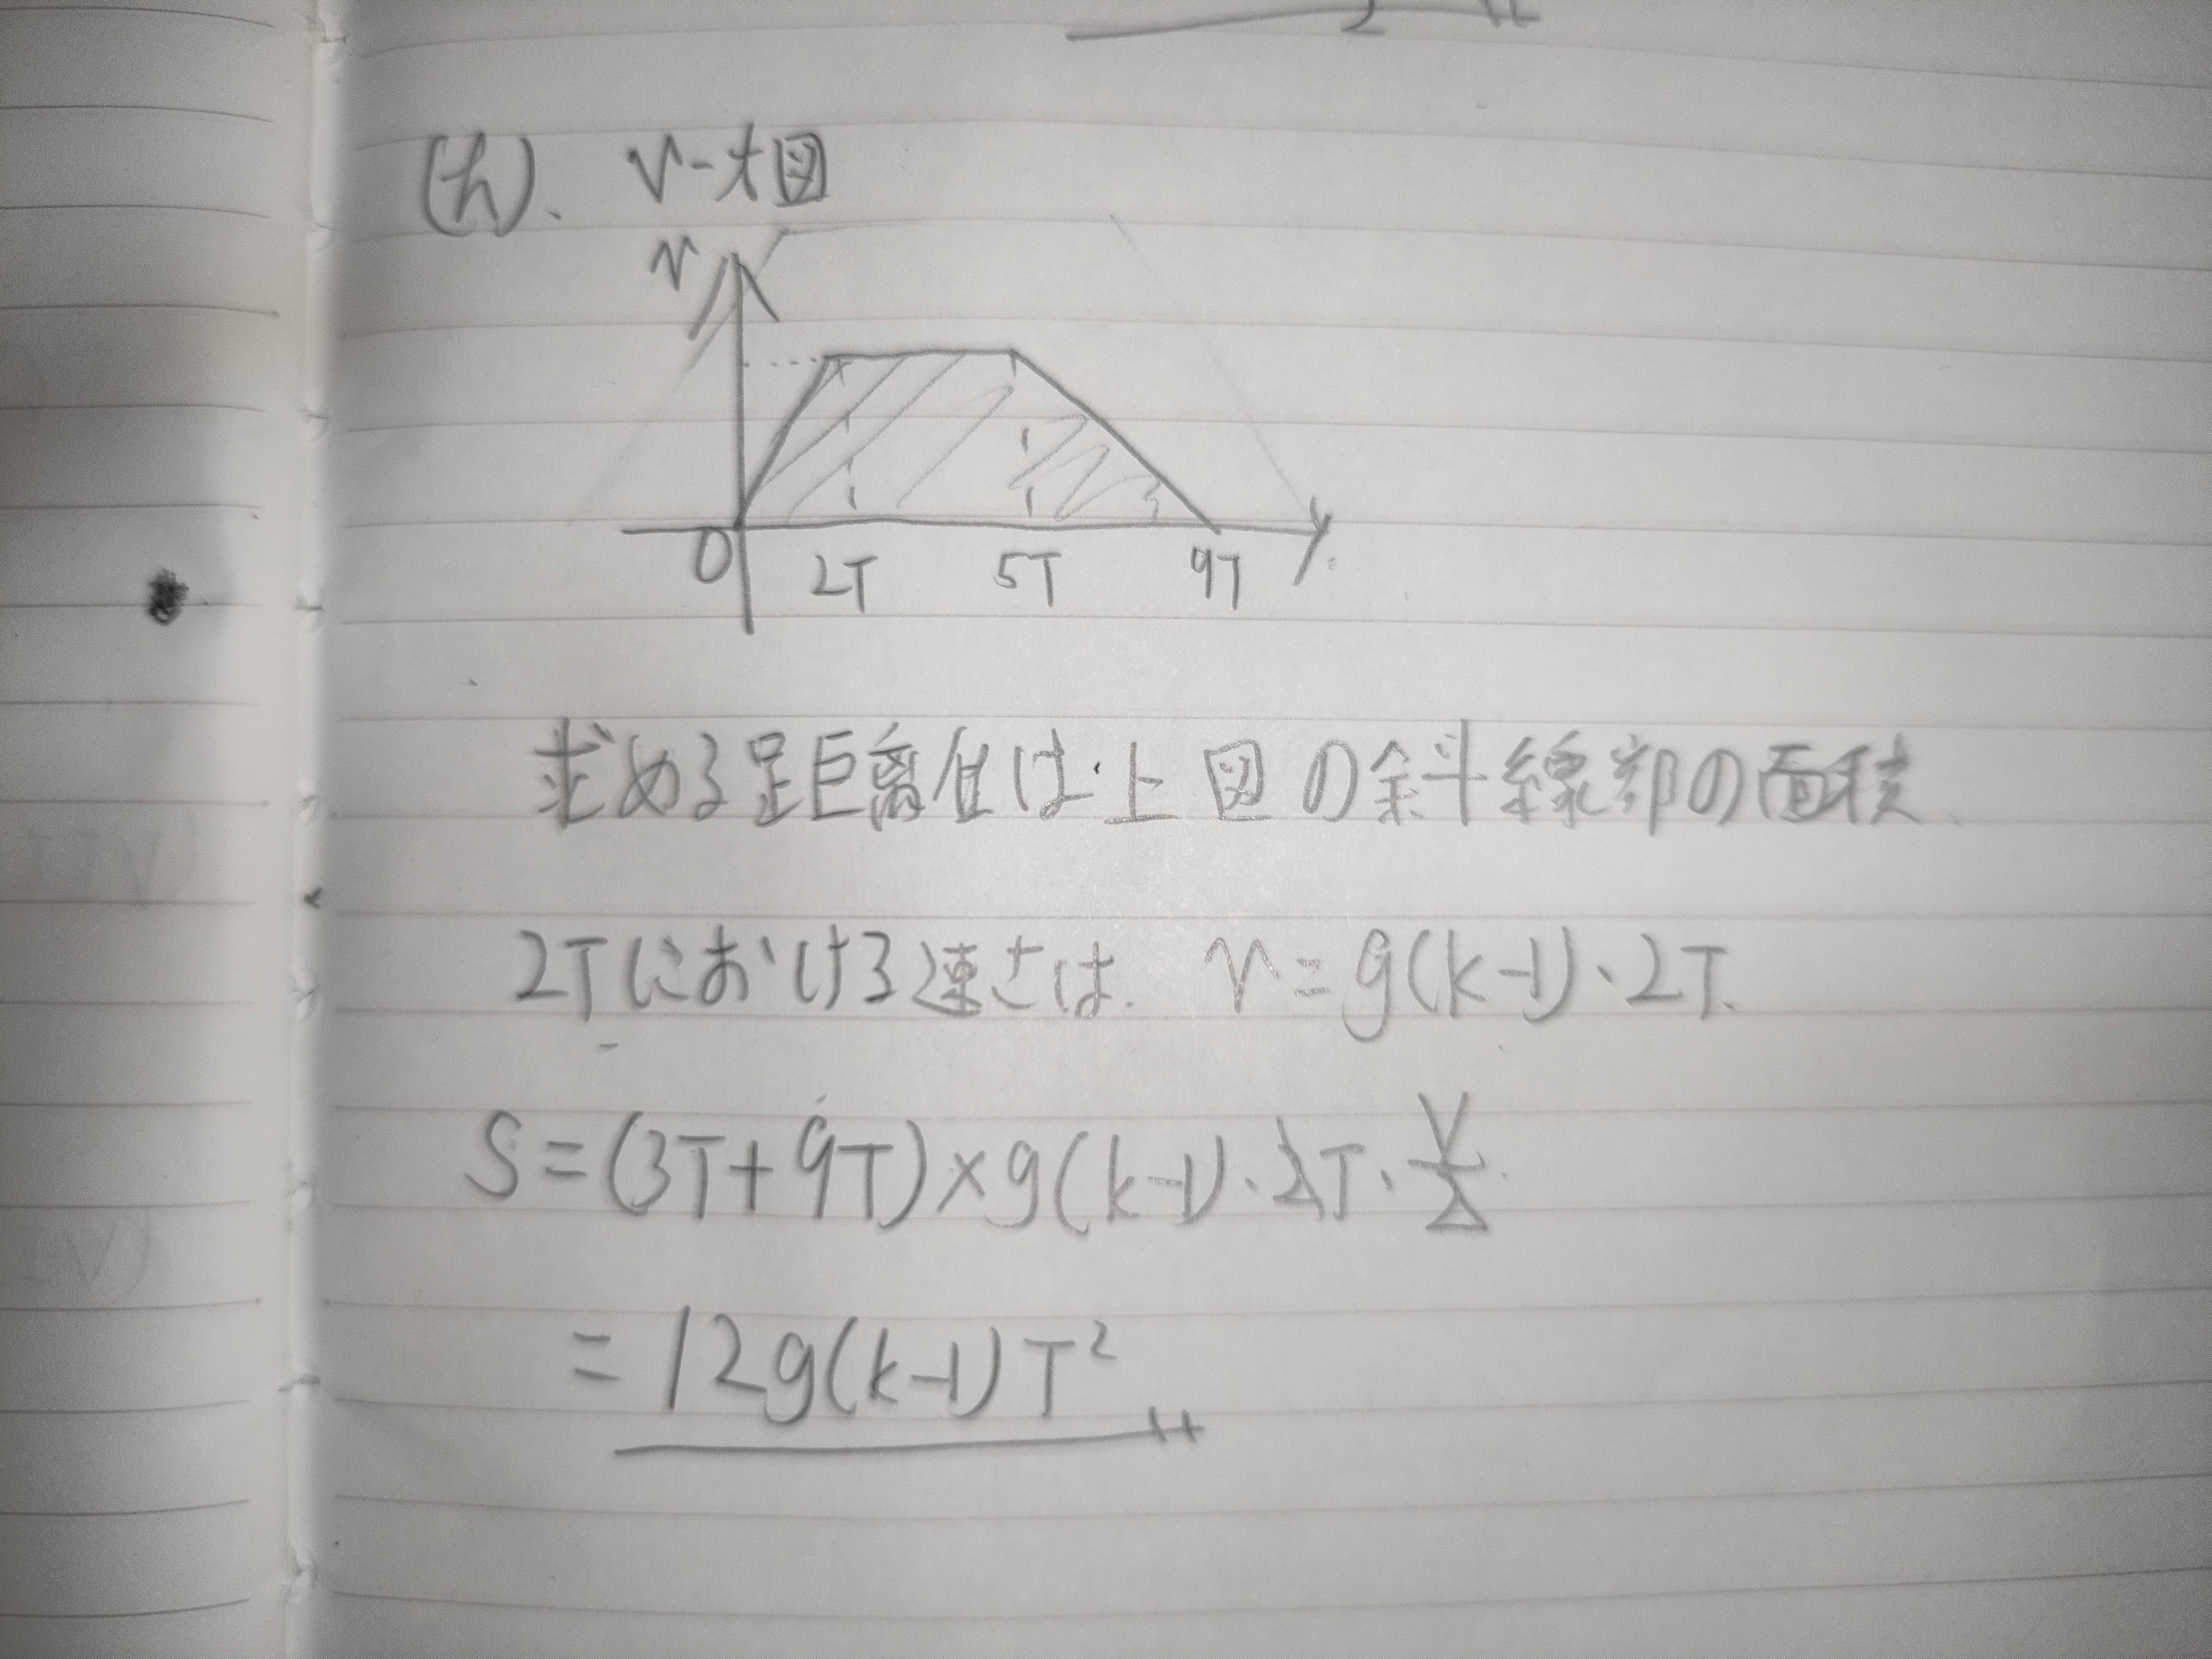 (h). v-t図
v
0 2T 5T 9T
求める距離値は、上図の斜線部の面積
2Tにおける速さは. v=g(k-1)・2T.
S=(3T+9T)×g(k-1)・2T・1/2
=12g(k-1)T²